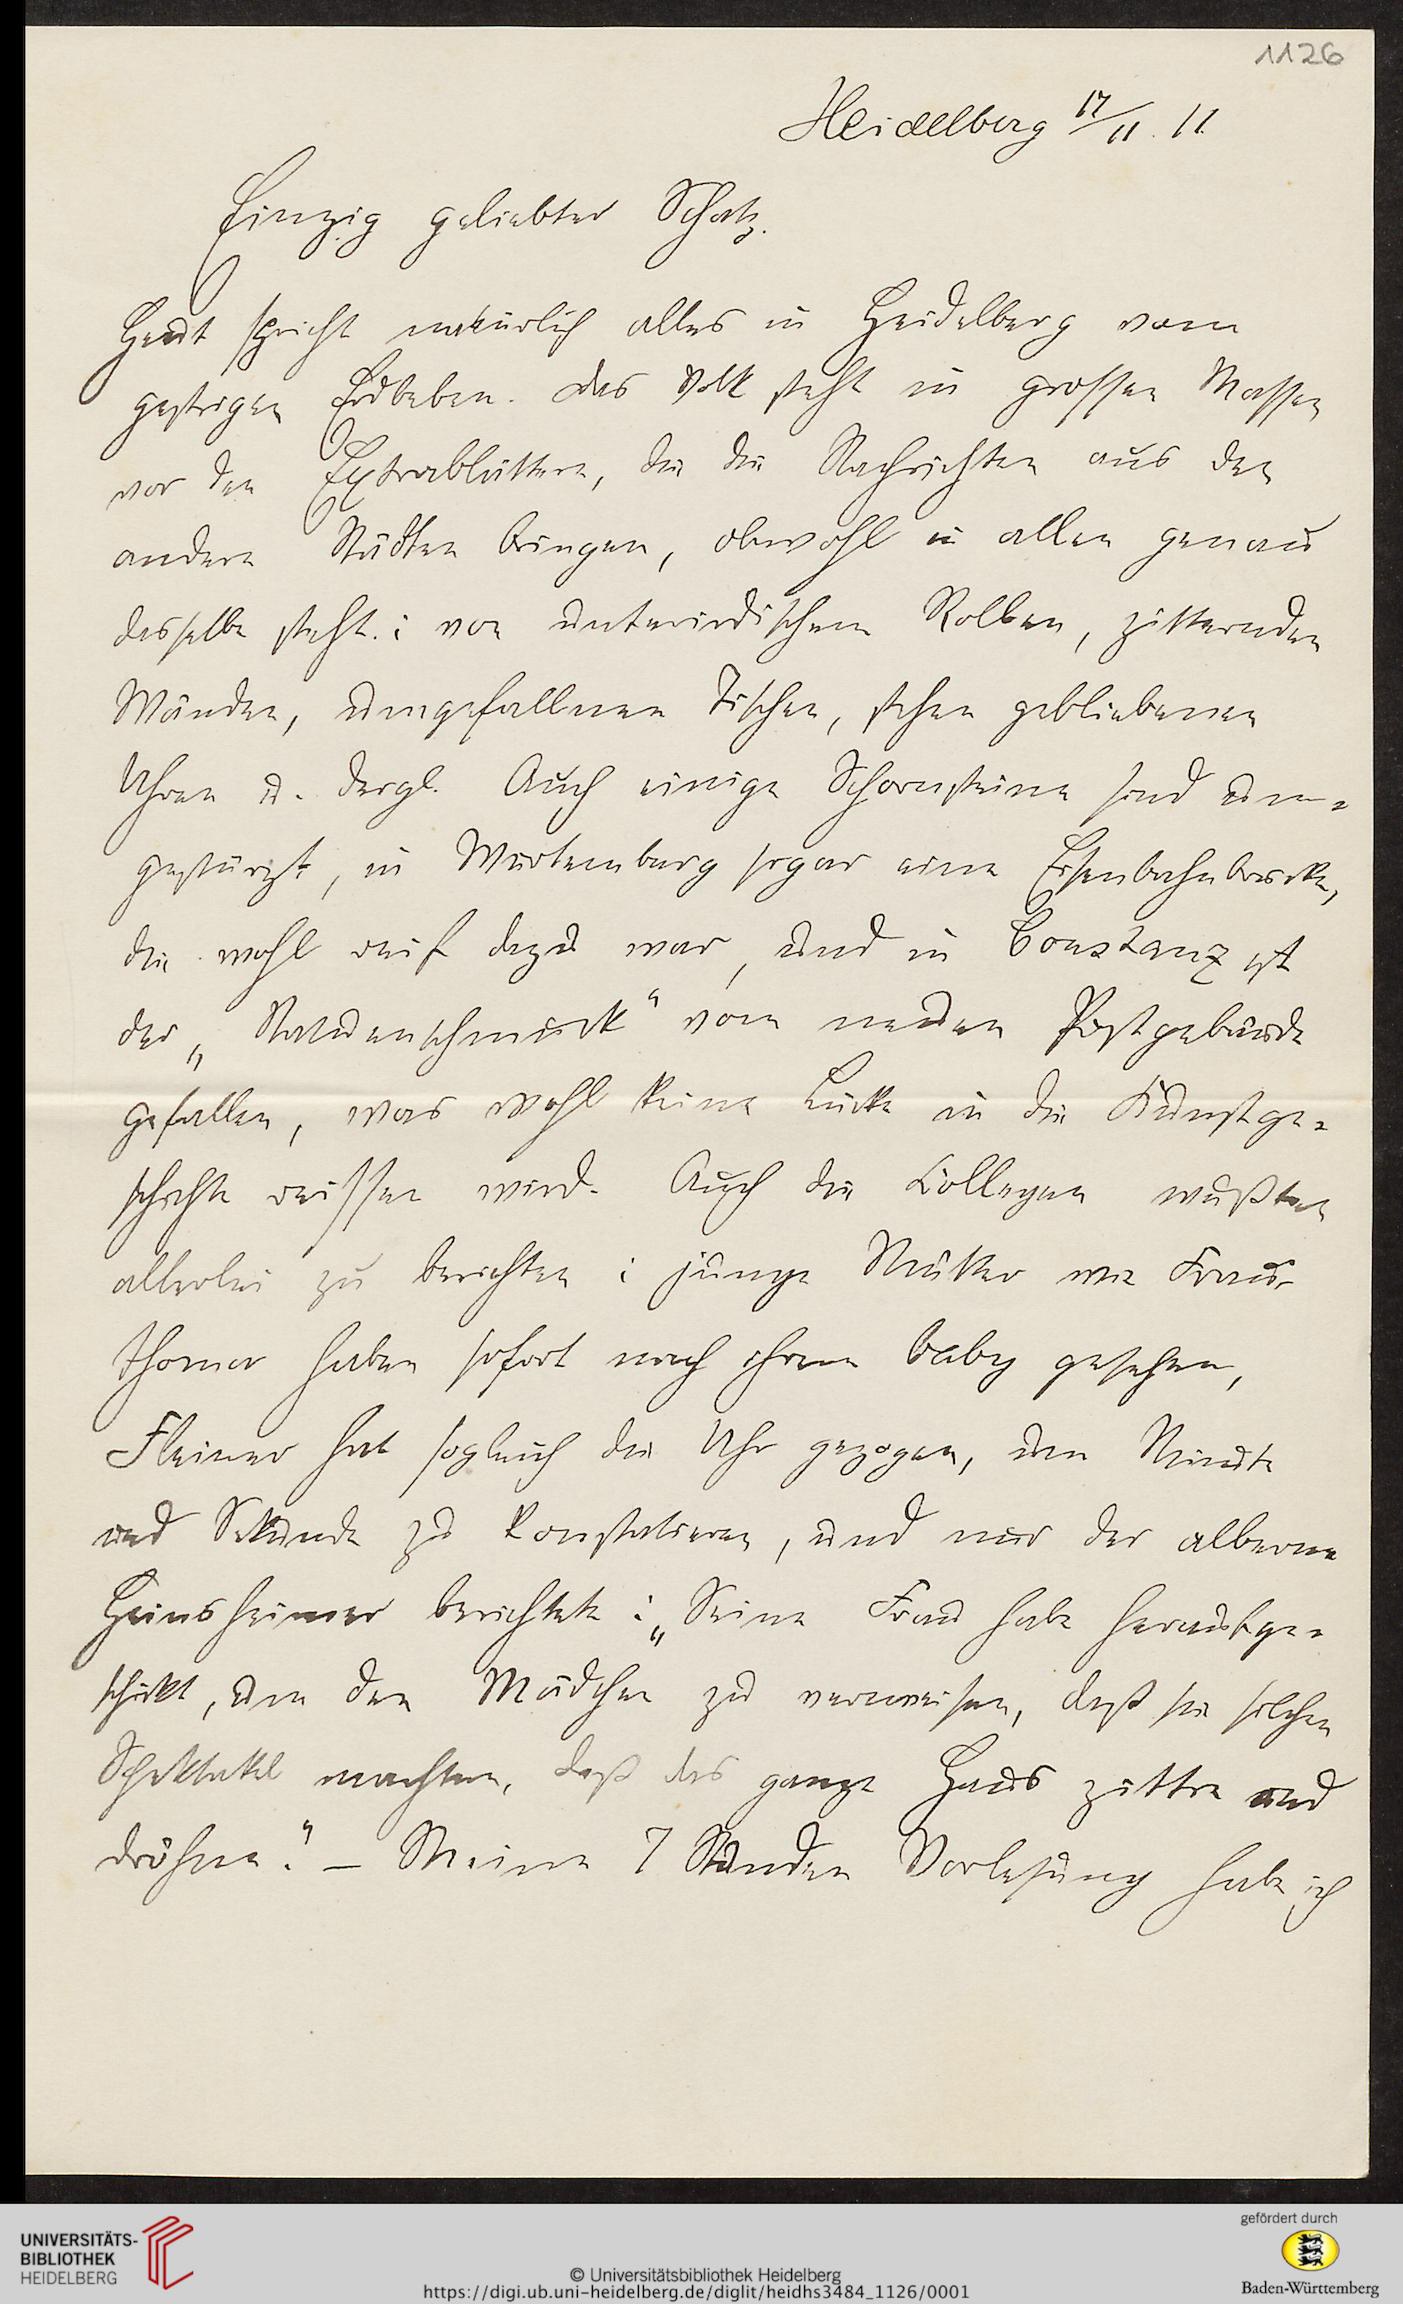 1126
Heidelberg 17/11. 11
Einzig geliebter Schatz.
Heut spricht natürlich alles in Heidelberg vom
gestrigen Erdbeben. Das Volk steht in grossen Massen
vor den Extrablättern, die die Nachrichten aus den
andern Städten bringen, obwohl in allen genau
dasselbe steht: von unterirdischem Rollen, zitternden
Wänden, umgefallnen Tischen, stehen gebliebenen
Uhren u. dergl. Auch einige Schornsteine sind um=
gestürzt, in Würtemberg sogar eine Eisenbahnbrücke,
die wohl reif dazu war, und in Constanz ist
der „Statuenschmuck“ vom neuen Postgebäude
gefallen, was wohl keine Lücke in die Kunstge=
schichte reissen wird. Auch die Kollegen wußten
allerlei zu berichten: junge Mütter wie Frau
Thoma haben sofort nach ihrem baby gesehen,
Fleiner hat sogleich die Uhr gezogen, um Minute
und Sekunde zu konstatieren, und nur der alberne
Heinsheimer berichtete: „Seine Frau habe heraufge=
schickt, um den Mädchen zu verweisen, daß sie solchen
Spektakel machten, daß das ganze Haus zittre und
dröhne.“ – Meine 7 Stunden Vorlesung habe ich
UNIVERSITÄTS-
BIBLIOTHEK
HEIDELBERG
© Universitätsbibliothek Heidelberg
https://digi.ub.uni-heidelberg.de/diglit/heidhs3484_1126/0001
gefördert durch
Baden-Württemberg